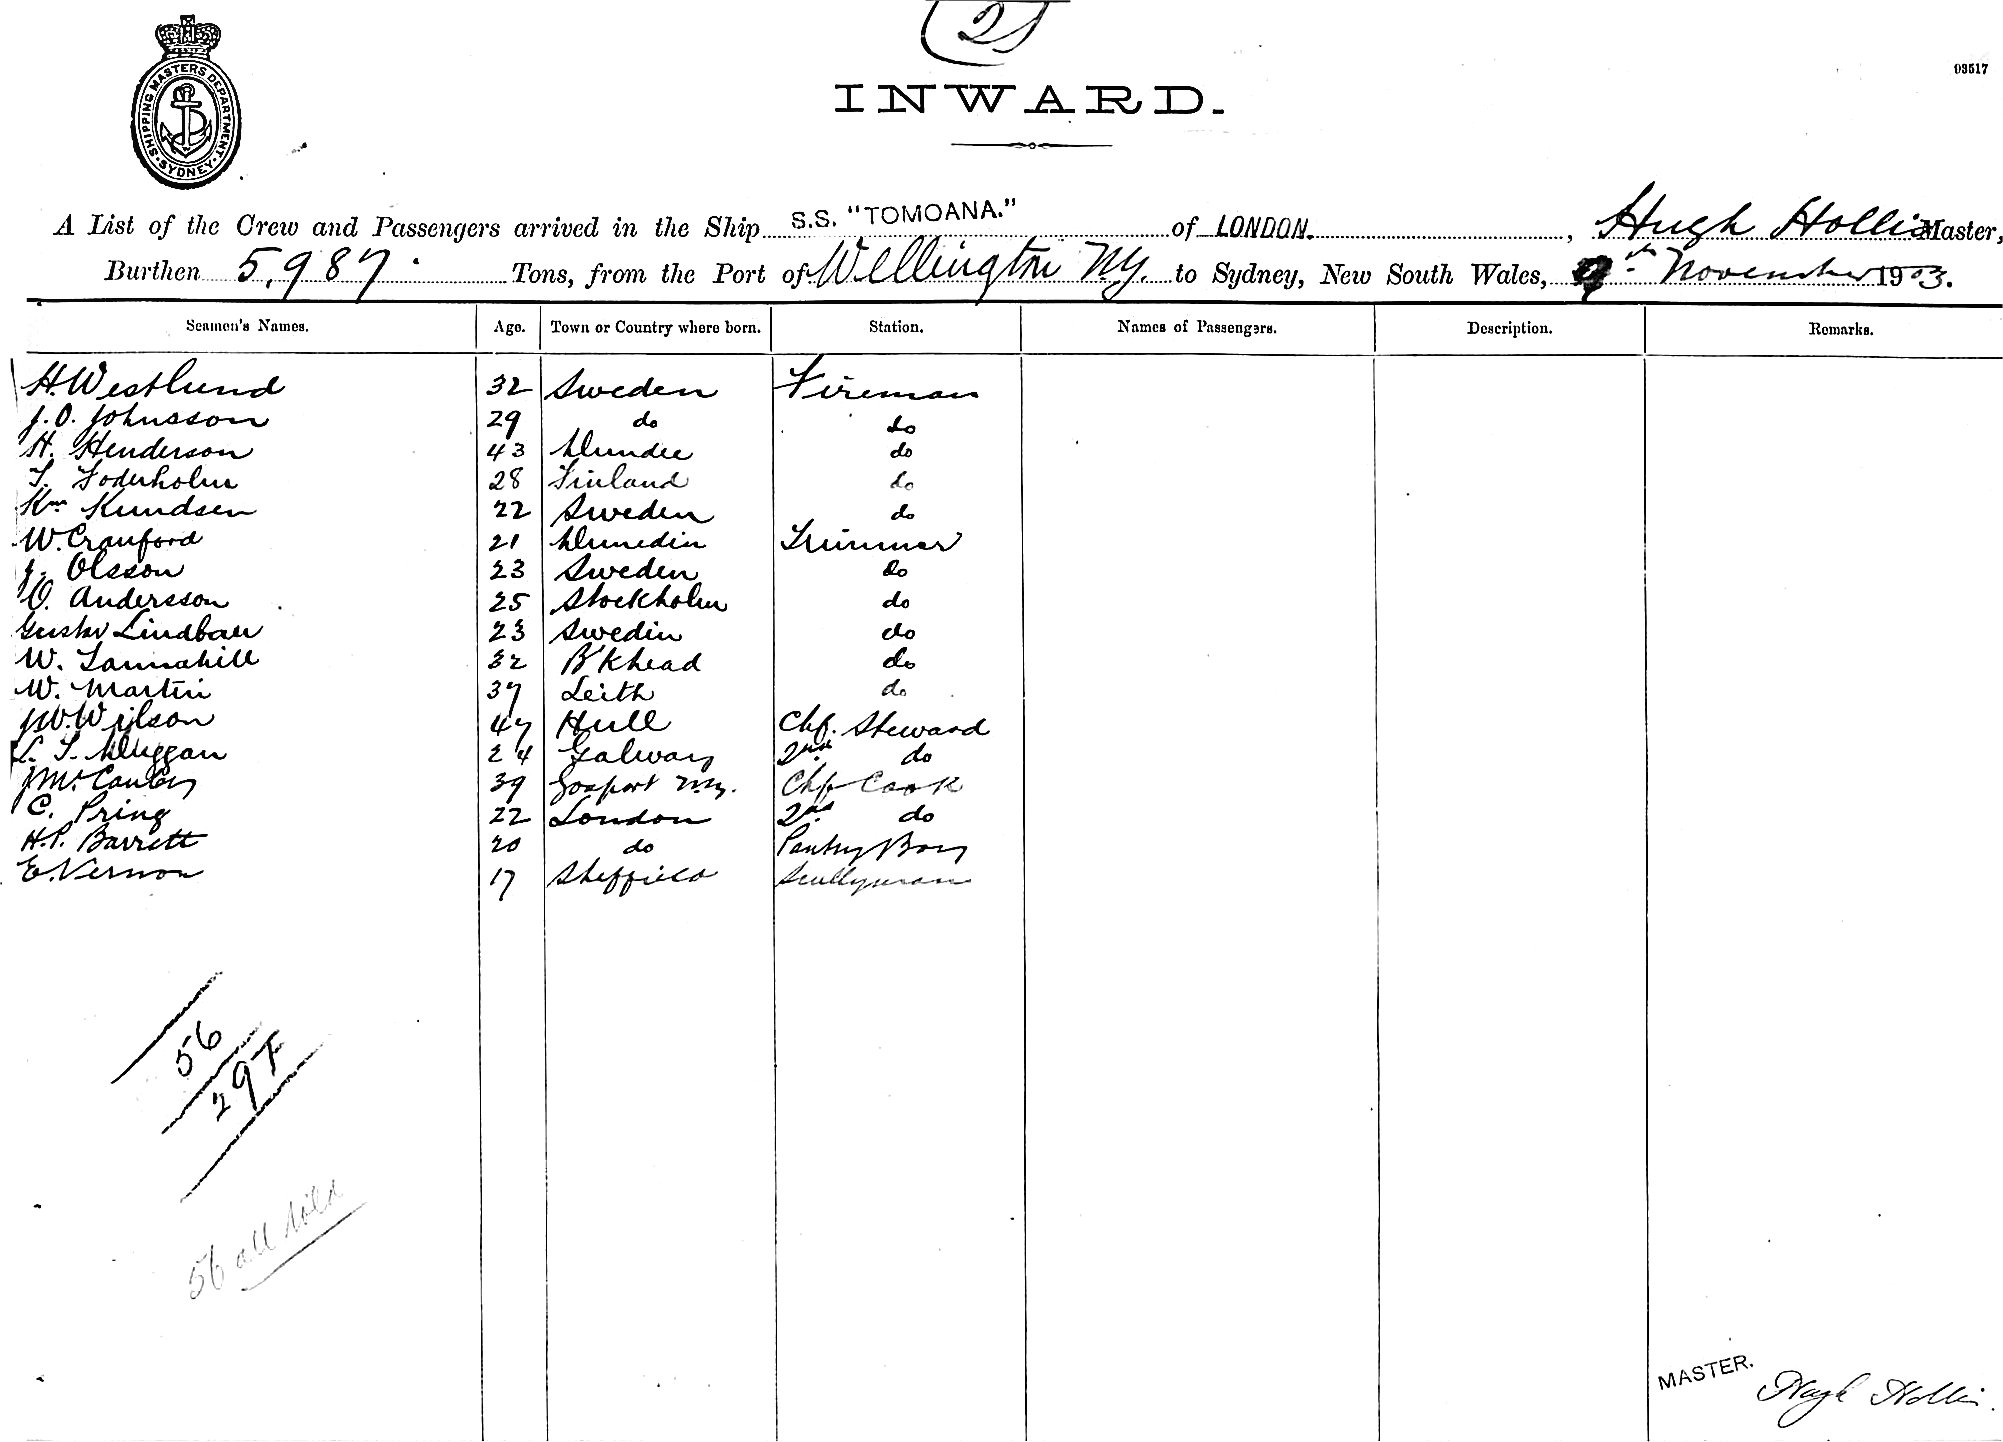 (2)
03517
INWARD.
SHIPPING MASTERS DEPARTMENT. SYDNEY.
A List of the Crew and Passengers arrived in the Ship S.S. "TOMOANA." of LONDON. , Hugh Hollis Master,
Burthen 5,987 Tons, from the Port of Wellington N.Z. to Sydney, New South Wales, 9th November 1903.
Seamen's Names. Age. Town or Country where born. Station. Names of Passengers. Description. Remarks.
H. Westlund 32 Sweden Fireman
J. O. Johnsson 29 do do
H. Henderson 43 Dundee do
T. Foderholm 28 Finland do
Kn Knudsen 22 Sweden do
W. Cranford 21 Dunedin Trimmer
J. Olsson 23 Sweden do
O. Andersson 25 Stockholm do
Gustav 23 Sweden do
W. Tannahill 32 B'khead do
W. Martin 37 Leith do
J.W. Wilson 47 Hull Chf. Steward
L. T. Duggan 24 Galway 2nd do
J McCauley 39 Gosport Chf Cook
C. Pring 22 London 2nd do
H.P. Barrett 20 do Pantry Boy
E. Vernon 17 Sheffield Scullyman
56
56 all told
MASTER. Hugh Hollis.